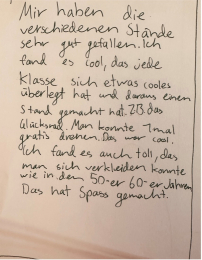 Mir haben die
verschiedenen Stände
sehr gut gefallen. Ich
fand es cool, das jede
Klasse sich etwas cooles
überlegt hat und daraus einen
Stand gemacht hat. ZB. das
Glücksrad. Man konnte 1mal
gratis drehen. Das war cool.
Ich fand es auch toll, das
man sich verkleiden konnte
wie in dem 50-er 60-er Jahren
Das hat Spass gemacht.